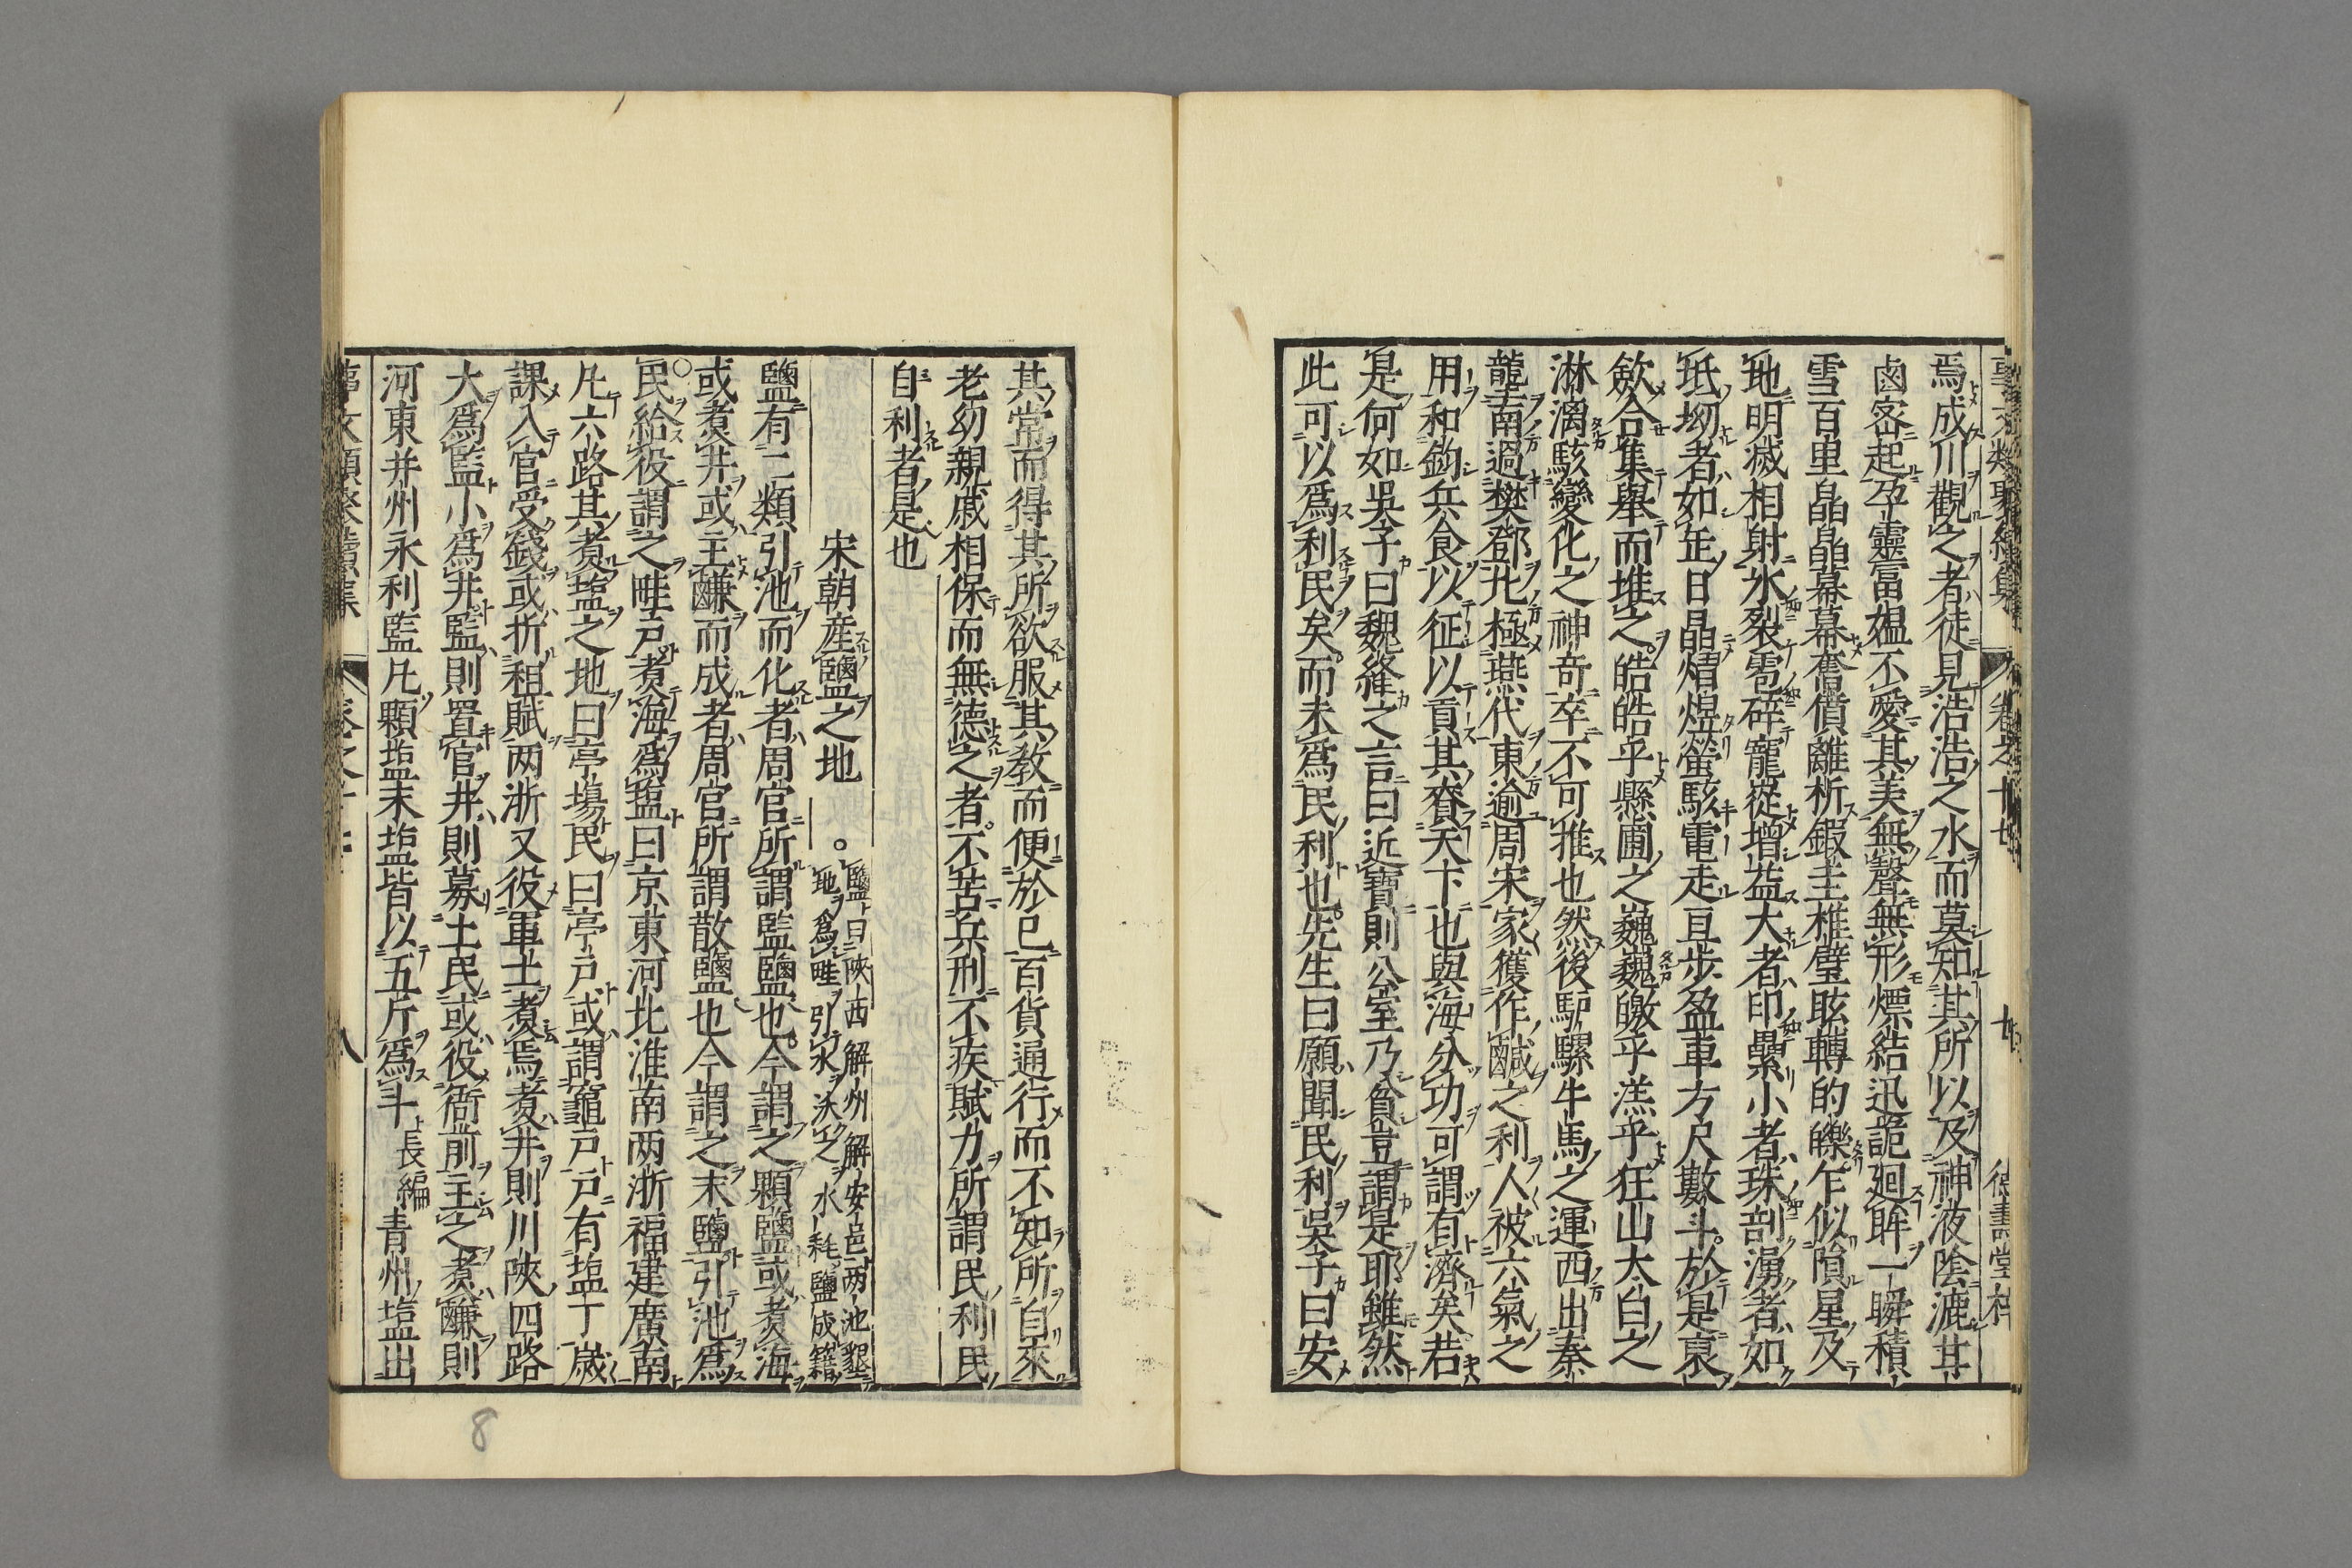 焉成川觀之者徒見浩浩之水而莫知其所以及神液陰漉甘
鹵宻起孕靈富媼不愛其美無聲無形熛結迅詭廻眸一瞬積
雪百里皛皛幕幕奮僨離析鍜圭椎璧眩轉的皪乍似隕星及
地明滅相射氷裂雹碎巃嵸增益大者印纍小者珠剖湧者如
坻坳者如缶日晶熠煜螢駭電走亘步盈車方尺數斗於是裒
斂合集舉而堆之皓皓乎懸圃之巍巍皦乎溔乎狂山大白之
淋漓駭變化之神奇卒不可推也然後馿騾牛馬之運西出秦
龍南過樊鄧北極燕代東逾周宋家獲作鹹之利人被六氣之
用和鈞兵食以征以貢其賚天下也與海分功可謂有濟矣若
是何如吳子曰魏絳之言曰近寶則公室乃貧豈謂是耶雖然
此可以爲利民矣而未爲民利也先生曰願聞民利吳子曰安
其常而得其所欲服其教而便於已百貨通行而不知所自來
老幼親戚相保而無德之者不苦兵刑不疾賦力所謂民利民
自利者是也
宋朝産鹽之地
鹽曰陜西解州解安邑兩池墾
地爲畦引水沃之水耗鹽成籍
鹽有二類引池而化者周官所謂監鹽也今謂之顆鹽或煑海
或煑井或主鹻而成者周官所謂散鹽也今謂之末鹽引池爲
○民給役謂之畦戸煑海爲塩曰京東河北淮南两浙福建廣南
凡六路其煑塩之地曰亭塲民曰亭戸或謂竈戸戸有塩丁歲
課入官受錢或折租賦两浙又役軍士煑焉煑井則川陜四路
大爲監小爲井監則置官井則募土民或役衙前主之煑鹻則
河東并州永利監凡顆塩末塩皆以五斤爲斗長編青州塩出
八
8